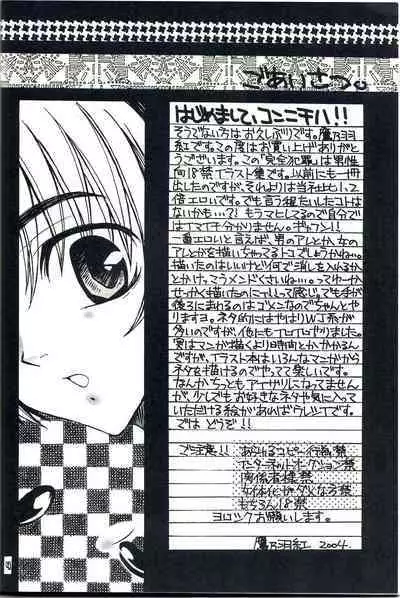 ごあいさつ。
はじめまして、コンニチハ!!
そうでない方はお久しぶりです。鷹乃羽
紅です。この度はお買い上げありがと
うございます。この「完全犯罪」は男性
向18禁イラスト集です。以前にも一冊
出したのですが、それよりは当社比1.2
倍エロいです。でも言う程たいしたコトは
ないかも…?! もうマヒしてるので自分で
はイマイチ分かりません。ギャフン!!
一番エロいと言えば、男のアレとか、女の
アレとかを描いちゃってるトコでしょうかねぇ。
描いたのはいいけど何で消しを入れるか
とかけっこうメンドくさいね…。ってゆーか
せっかく描いたのにーしって感じ。でも手が
後ろにまわるのはコワイなのでちゃんとや
りますヨ。ネタ的にはやはりWJ系が
多いのですが、他にもイロイロやりました。
実はマンガ描くより時間とかかかるん
ですが、イラスト本はいろんなマンガから
ネタを描けるのでやってて楽しいです。
なんかちっともアーサリルになってません
が、少しでもお好きなネタや気に入って
いただける絵があればウレシイです。
では どうぞ!!
ご注意!!
あらゆるコピー行為禁
インターネットオークション禁
関係者様禁
女体化ダメな方禁
もちろん18禁
ヨロシクお願いします。
鷹乃羽紅 2004.